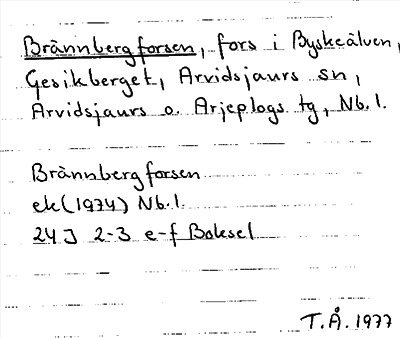 Brännbergforsen, fors i Byskeälven,
Gesikberget, Arvidsjaurs sn,
Arvidsjaurs o. Arjeplogs tg, Nb. l.
Brännbergforsen
ek (1974) Nb. l.
24 J 2-3 e-f Boksel
T. Å. 1977